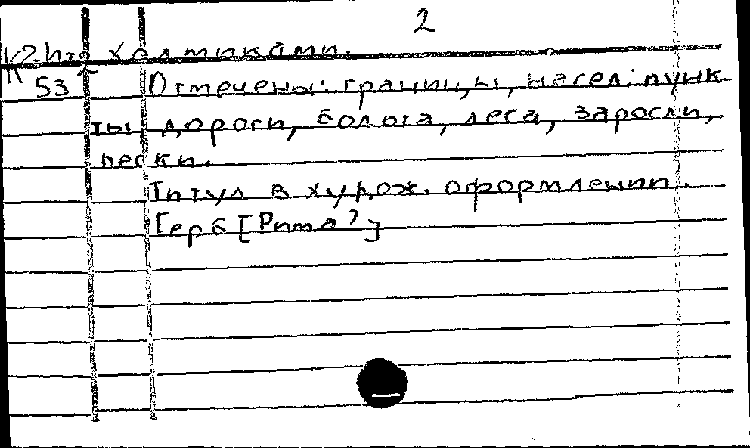 2
холмиками.
53 Отмечены: границы, насел. пунк
ты, дороги, болота, леса, заросли,
пески.
Титул в худож. оформлении.
Герб [Рима?]